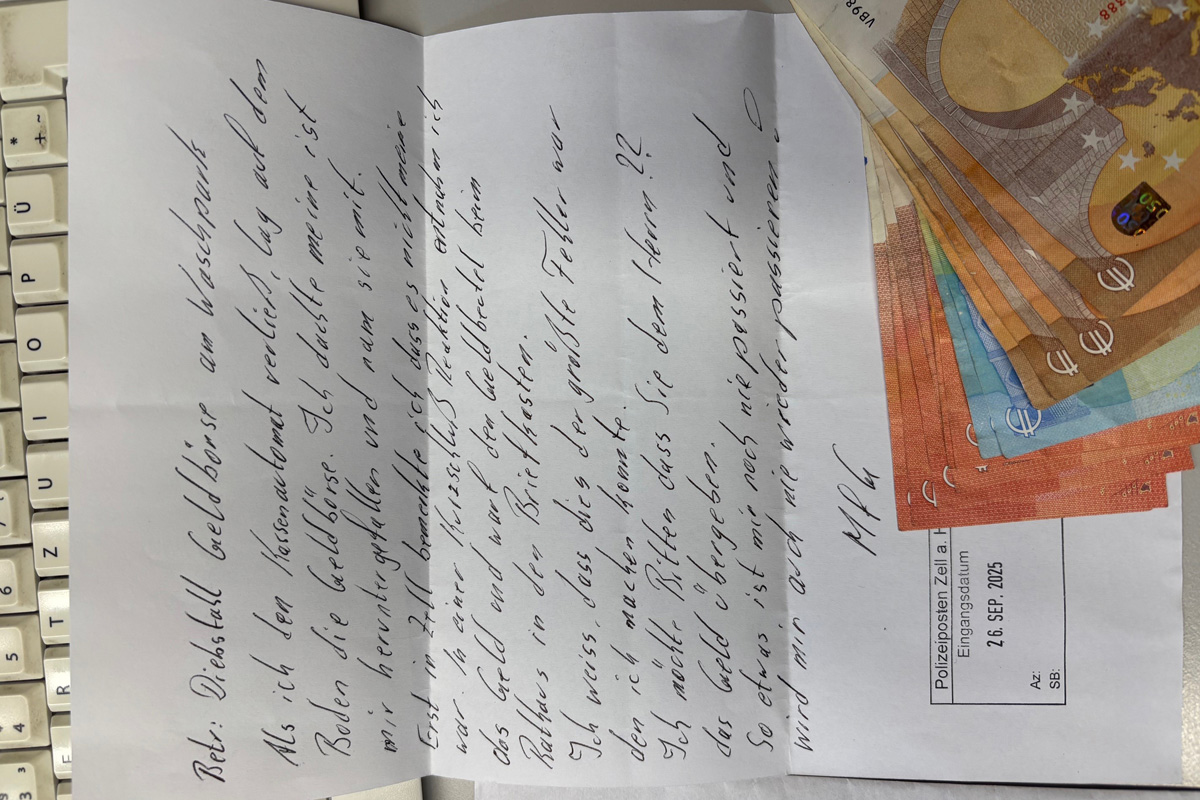 Betr.: Diebstahl Geldbörse am Waschpark
Als ich den Kassenautomat verließ, lag auf dem
Boden die Geldbörse. Ich dachte meine ist
mir heruntergefallen und nam sie mit.
Erst in Zell bemerkte ich dass es nicht meine
war. In einer Kurzschluß Reaktion entnahm ich
das Geld und warf den Geldbeutel beim
Rathaus in den Briefkasten.
Ich weiss, dass dies der größte Fehler war
den ich machen konnte.
Ich möchte Bitten dass Sie dem Herrn ??
das Geld übergeben.
So etwas ist mir noch nie passiert und
wird mir auch nie wieder passieren
Polizeiposten Zell a. H
Eingangsdatum
26. SEP. 2025
Az:
SB:
VB98
388
050
* + ~
Ü
P
O
I
U
Z
T
R
E
7 /
6
5
4
3 3